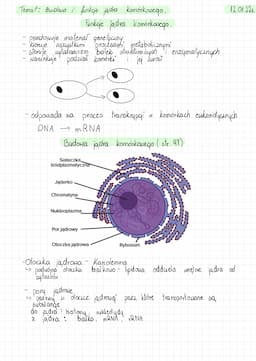 Temat: Budowa i funkcje jądra komórkowego.
12.01.22r.
Funkcje jądra komórkowego.
- przechowuje materiał genetyczny
- kieruje wszystkimi procesami metabolicznymi
- steruje wytwarzaniem białek strukturalnych i enzymatycznych
- warunkuje podział komórki i jej wzrost
- odpowiada za proces transkrypcji w komórkach eukariotycznych
DNA → mRNA
Budowa jądra komórkowego (str. 97)
Siateczka
śródplazmatyczna
Jąderko
Chromatyna
Nukleoplazma
Por jądrowy
Otoczka jądrowa
Rybosom
- Otoczka jądrowa - Kariolemma
↳ podwójna otoczka białkowo-lipidowa oddziela wnętrze jądra od
cytozolu
- pory jądrowe
↳ otwory w otoczce jądrowej przez które transportowane są
do jądra: histony, nukleotydy
z jądra: białka, mRNA, rRNA